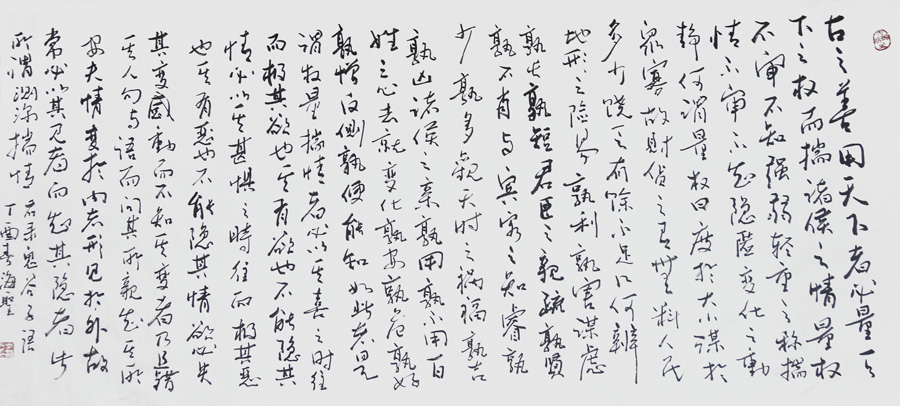 古之善用天下者必量天
下之权而揣诸侯之情量权
不审不知强弱轻重之称揣
情不审不知隐匿变化之动
静何谓量权曰度於大小谋於
众寡故财货之有無料人民
多少饶乏有馀不足几何辨
地形之险易孰利孰害谋虑
孰长孰短君臣之亲疏孰贤
孰不肖与宾客之知睿孰
少孰多观天时之祸福孰吉
孰凶诸侯之亲孰用孰不用百
姓之心去就变化孰安孰危孰好
孰憎反侧孰便能知如此者是
谓权量揣情者必以其喜之时往
而极其欲也其有欲也不能隐其
情必以其甚惧之时往而极其恶
也其有恶也不能隐其情欲必失
其变感动而不知其变者乃且错
其人勿与语而问其所亲知其所
安夫情变於内者形见於外故
常必以其见者而知其隐者此
所谓测深揣情 右录鬼谷子语
丁酉春海聖